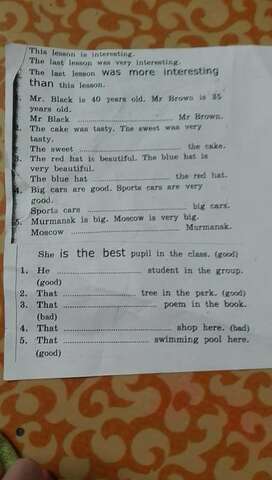 This lesson is interesting.
The last lesson was very interesting.
The last lesson was more interesting
than this lesson.
1. Mr. Black is 40 years old. Mr Brown is 35
years old.
Mr Black .............................. Mr Brown.
The cake was tasty. The sweet was very
tasty.
The sweet .............................. the cake.
3. The red hat is beautiful. The blue hat is
very beautiful.
The blue hat .............................. the red hat.
4. Big cars are good. Sports cars are very
good.
Sports cars .............................. big cars.
5. Murmansk is big. Moscow is very big.
Moscow .............................. Murmansk.
She is the best pupil in the class. (good)
1. He .............................. student in the group.
(good)
2. That .............................. tree in the park. (good)
3. That .............................. poem in the book.
(bad)
4. That .............................. shop here. (bad)
5. That .............................. swimming pool here.
(good)